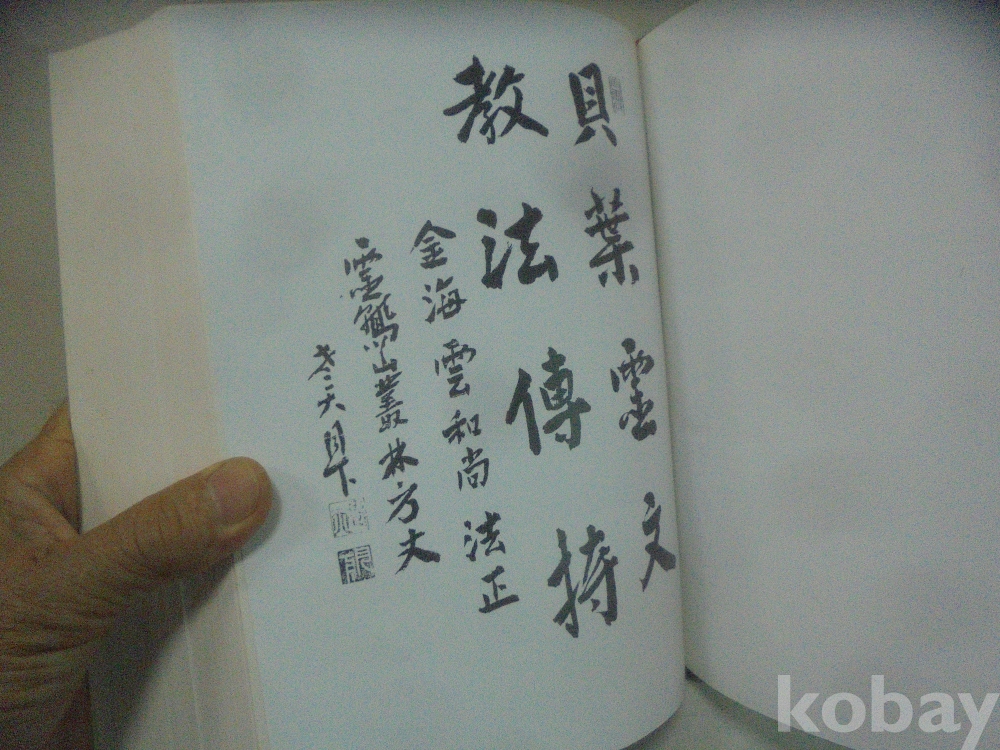 貝葉靈文
教法傳持
金海雲和尚法正
靈鷲山叢林方丈
老天月下
kobay